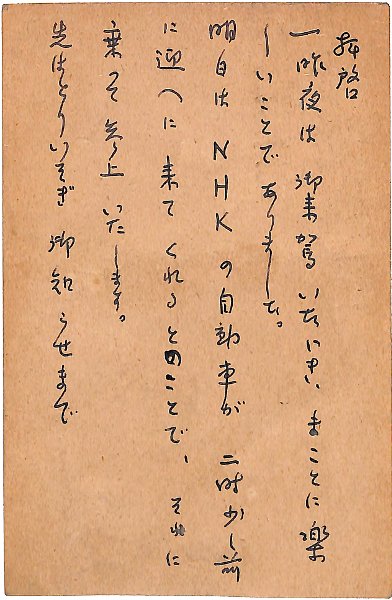 拝啓
一昨夜は御来駕いただき、まことに楽
しいことでありました。
明日はNHKの自動車が二時少し前
に迎へに来てくれるとのことで、それに
乗つて参上いたします。
先はとりいそぎ御知らせまで